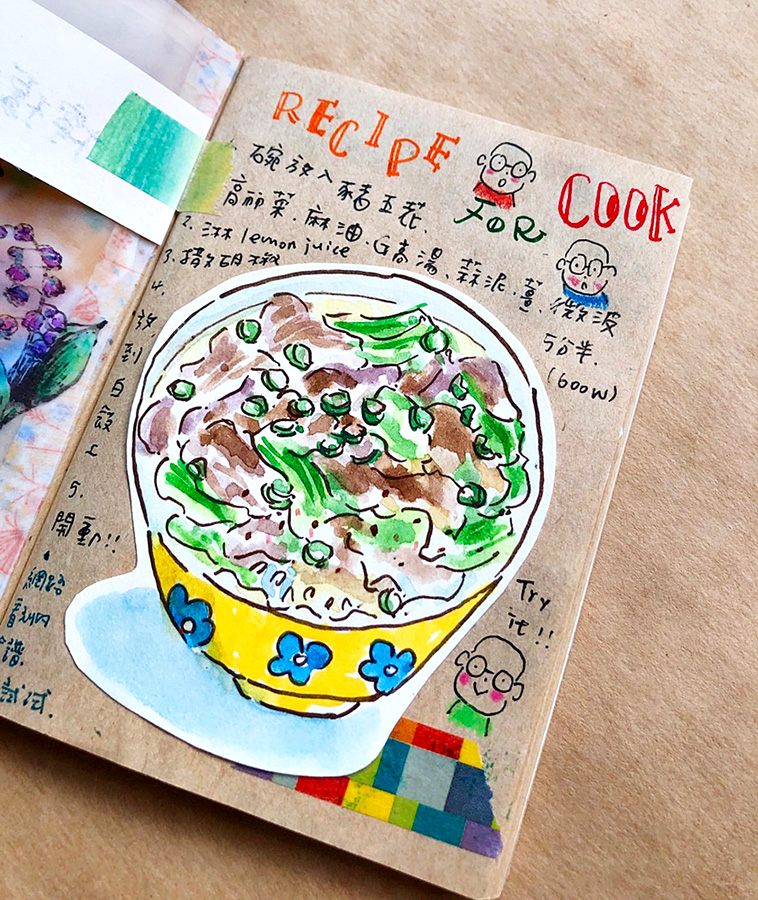 RECIPE
FOR
COOK
碗放入豬五花、
高麗菜.麻油.G高湯、蒜泥.薑.微波
5分半.
(600W)
2. 淋 lemon juice
3. 撒胡椒
4.
放
到
白
飯
上
5.
開動!!
網路
看到的
食譜.
試試.
Try
it!!